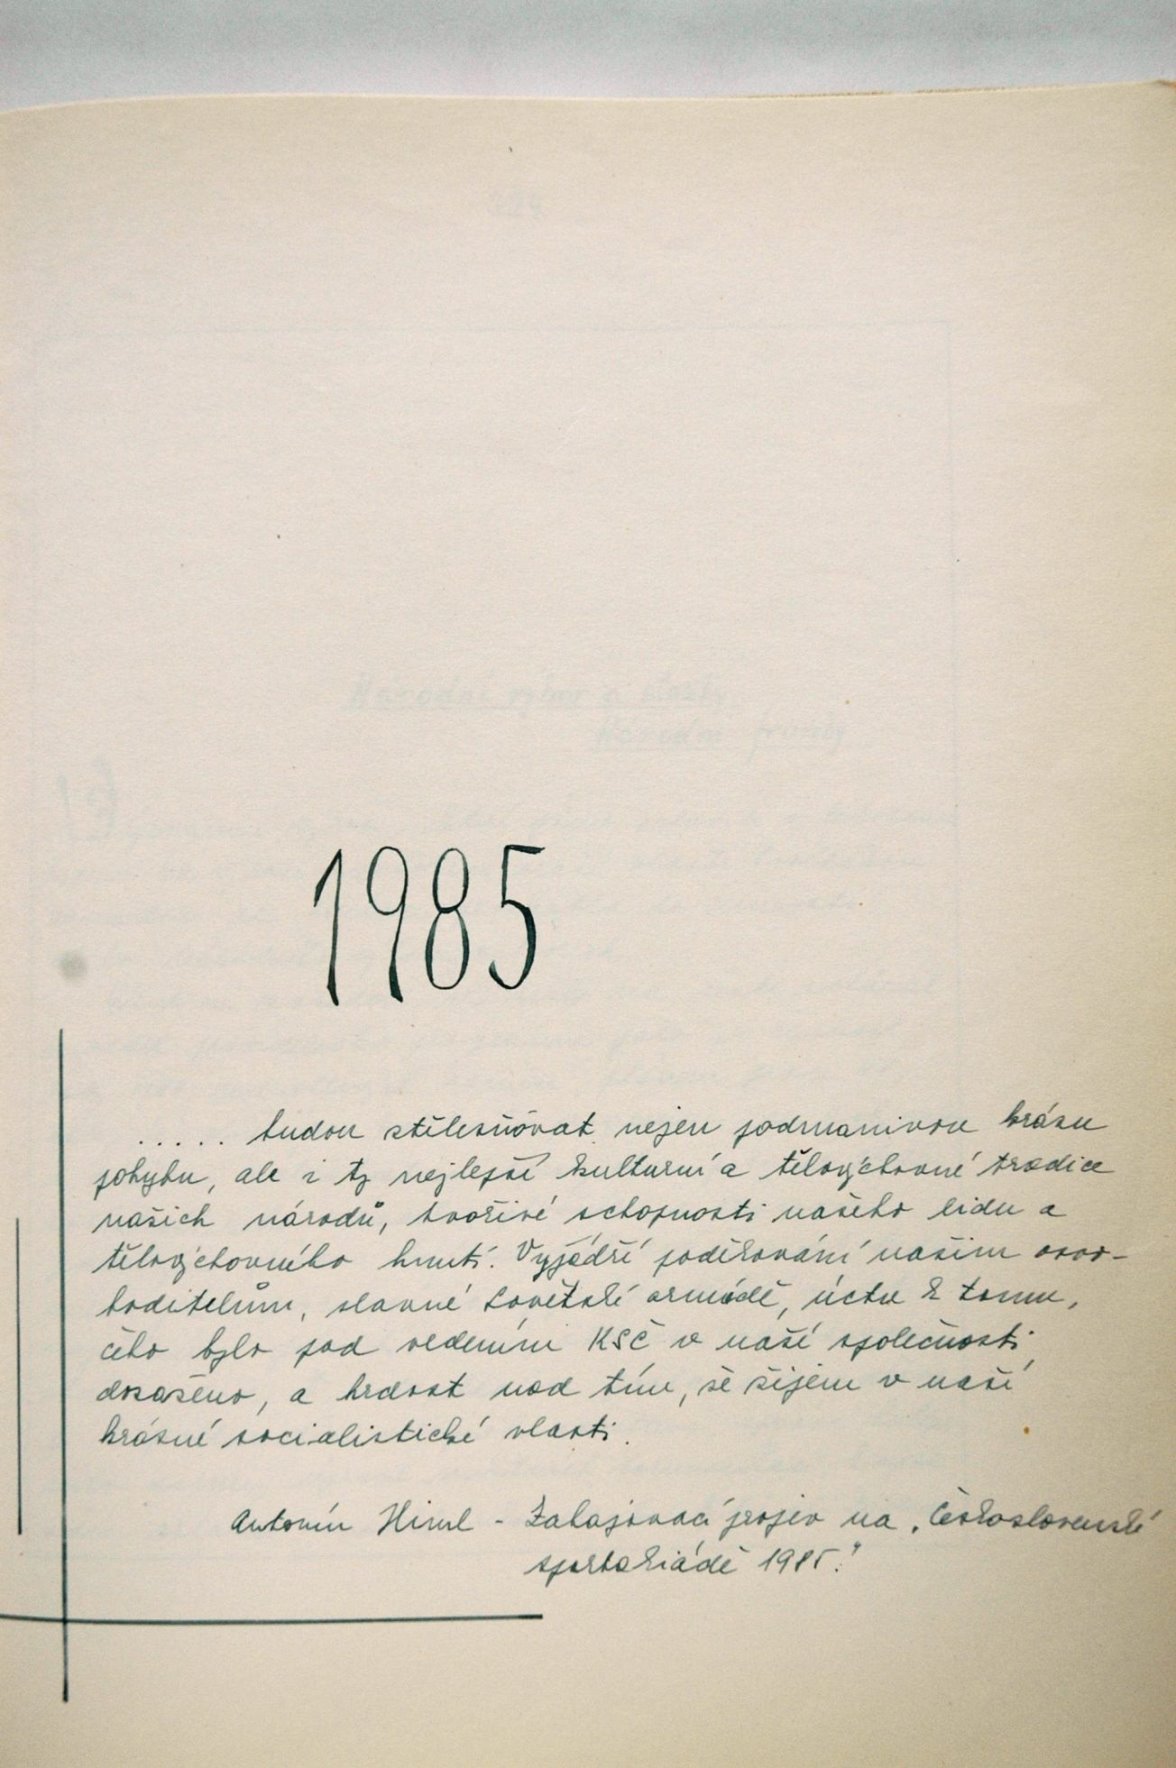 1985
..... budou ztělesňovat nejen podmanivou krásu
pohybu, ale i ty nejlepší kulturní a tělovýchovné tradice
našich národů, tvořivé schopnosti našeho lidu a
tělovýchovného hnutí. Vyjádří poděkování našim osvo-
boditelům, slavné Sovětské armádě, úctu k tomu,
čeho bylo pod vedením KSČ v naší společnosti
dosaženo, a hrdost nad tím, že žijem v naší
krásné socialistické vlasti.
Antonín Himl - Zahajovací projev na „Československé
spartakiádě 1985."